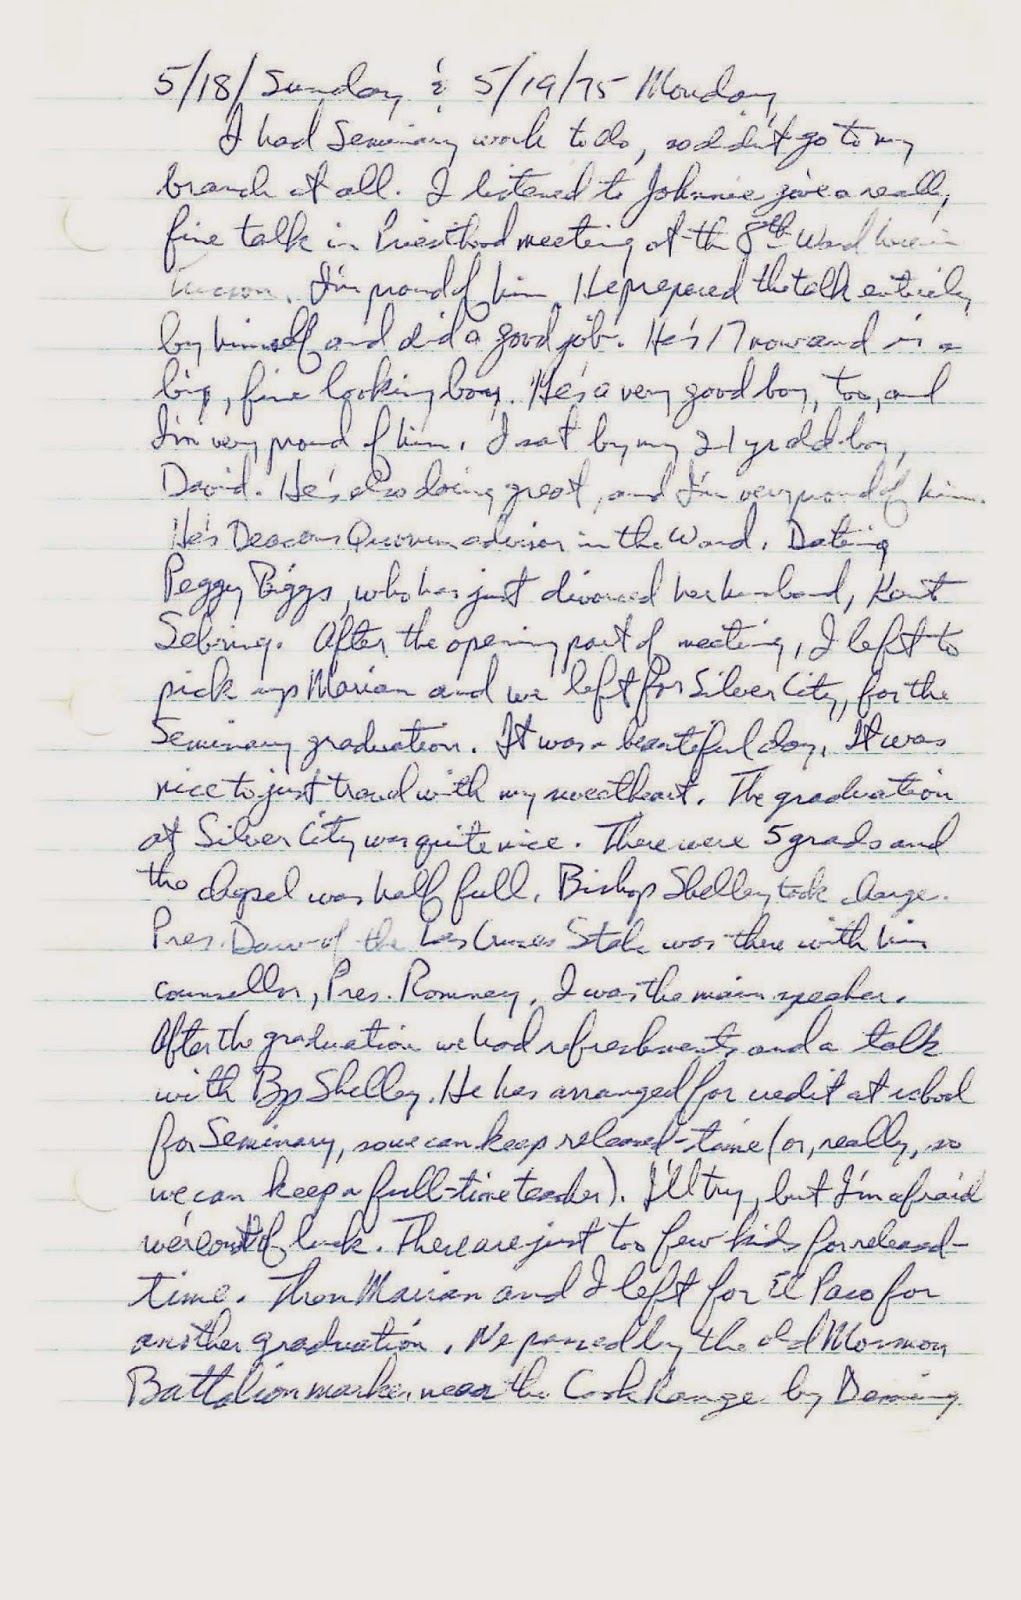 5/18/ Sunday & 5/19/75 Monday
I had Seminary work to do, so didn't go to my
branch at all. I listened to Johnnie give a really
fine talk in Priesthood meeting at the 8th Ward here in
Tucson. I'm proud of him. He prepared the talk entirely
by himself and did a good job. He's 17 now and is a
big, fine looking boy. He's a very good boy, too, and
I'm very proud of him. I sat by my 21 yr old boy,
David. He's also doing great, and I'm very proud of him.
He's Deacons Quorum advisor in the Ward. Dating
Peggy Biggs, who has just divorced her husband, Kent
Sebring. After the opening part of meeting, I left to
pick up Marian and we left for Silver City, for the
Seminary graduation. It was a beautiful day. It was
nice to just travel with my sweetheart. The graduation
at Silver City was quite nice. There were 5 grads and
the chapel was half full. Bishop Shelley took charge.
Pres. of the Las Cruces Stake was there with his
counsellor, Pres. Romney. I was the main speaker.
After the graduation we had refreshments and a talk
with Bp Shelley. He has arranged for credit at school
for Seminary, so we can keep released-time (or, really, so
we can keep a full-time teacher). I'll try, but I'm afraid
we're out of luck. There are just too few kids for released-
time. Then Marian and I left for El Paso for
another graduation. We passed by the old Mormon
Battalion marker near the Cook Range by Deming